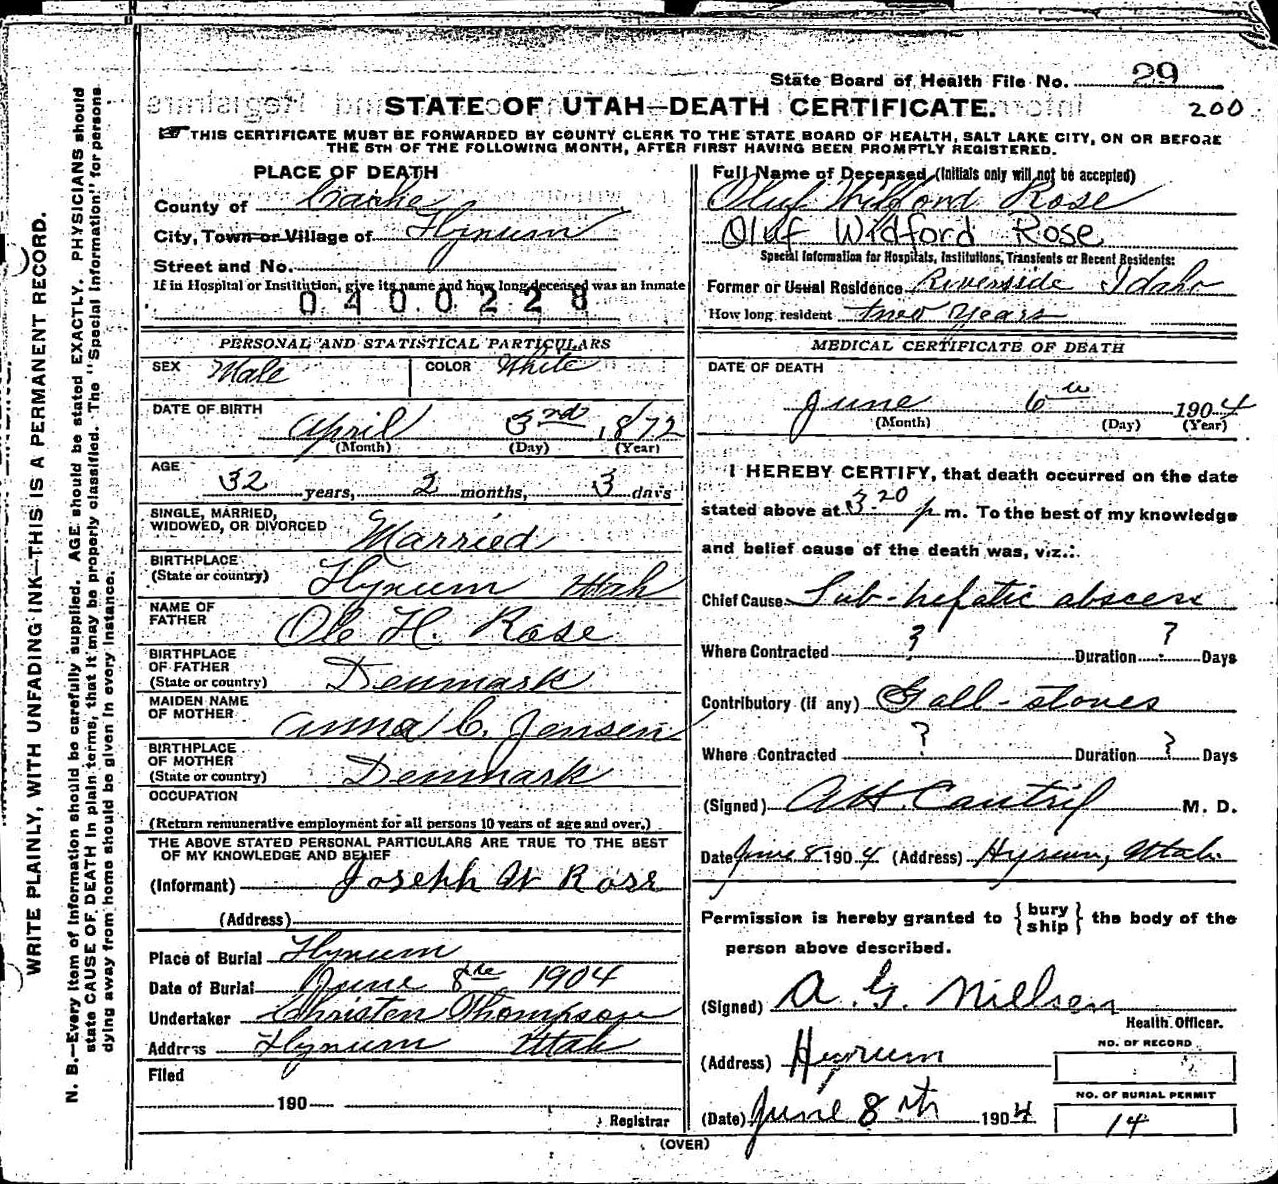 State Board of Health File No. 29
STATE OF UTAH—DEATH CERTIFICATE.
200
THIS CERTIFICATE MUST BE FORWARDED BY COUNTY CLERK TO THE STATE BOARD OF HEALTH, SALT LAKE CITY, ON OR BEFORE
THE 5TH OF THE FOLLOWING MONTH, AFTER FIRST HAVING BEEN PROMPTLY REGISTERED.
PLACE OF DEATH
County of Cache
City, Town or Village of Hyrum
Street and No.
If in Hospital or Institution, give its name and how long deceased was an inmate
0400228
PERSONAL AND STATISTICAL PARTICULARS
SEX Male COLOR White
DATE OF BIRTH
April 3rd 1872
(Month) (Day) (Year)
AGE
32 years, 2 months, 3 days
SINGLE, MARRIED,
WIDOWED, OR DIVORCED Married
BIRTHPLACE
(State or country) Hyrum Utah
NAME OF
FATHER Ole H. Rose
BIRTHPLACE
OF FATHER
(State or country) Denmark
MAIDEN NAME
OF MOTHER Anna C. Jensen
BIRTHPLACE
OF MOTHER
(State or country) Denmark
OCCUPATION
(Return remunerative employment for all persons 10 years of age and over.)
THE ABOVE STATED PERSONAL PARTICULARS ARE TRUE TO THE BEST
OF MY KNOWLEDGE AND BELIEF
(Informant) Joseph W Rose
(Address)
Place of Burial Hyrum
Date of Burial June 8th 1904
Undertaker Christen Thompson
Address Hyrum Utah
Filed
190
Registrar
Full Name of Deceased (Initials only will not be accepted)
Oluf Wilford Rose
Oluf Widford Rose
Special Information for Hospitals, Institutions, Transients or Recent Residents:
Former or Usual Residence Riverside Idaho
How long resident two years
MEDICAL CERTIFICATE OF DEATH
DATE OF DEATH
June 6th 1904
(Month) (Day) (Year)
I HEREBY CERTIFY, that death occurred on the date
stated above at 3.20 p m. To the best of my knowledge
and belief cause of the death was, viz.:
Chief Cause Sub-hepatic abscess
Where Contracted ? Duration ? Days
Contributory (if any) Gall-stones
Where Contracted ? Duration ? Days
(Signed) A H. Cantril M. D.
Date June 8 1904 (Address) Hyrum, Utah.
Permission is hereby granted to { bury ship } the body of the
person above described.
(Signed) A. G. Nielsen
Health Officer.
(Address) Hyrum
NO. OF RECORD
NO. OF BURIAL PERMIT
14
(Date) June 8th 1904
(OVER)
WRITE PLAINLY, WITH UNFADING INK—THIS IS A PERMANENT RECORD.
N. B.—Every item of information should be carefully supplied. AGE should be stated EXACTLY. PHYSICIANS should
state CAUSE OF DEATH in plain terms, that it may be properly classified. The "Special Information" for persons
dying away from home should be given in every instance.